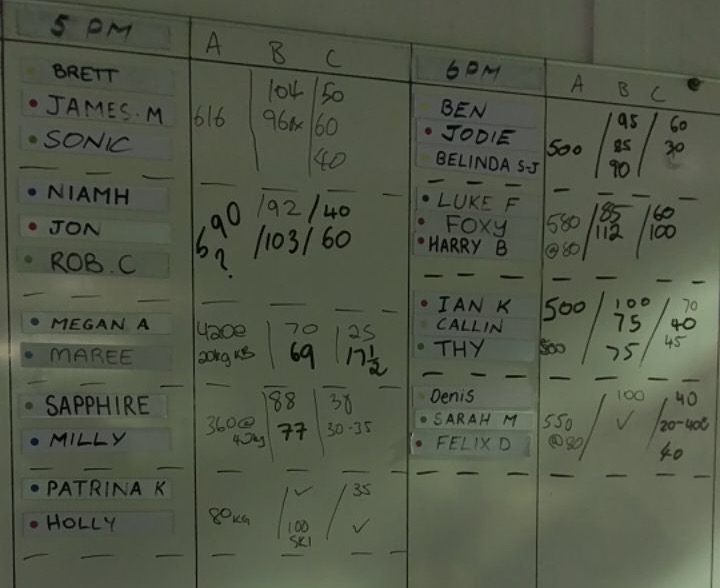 5 PM
A B C
BRETT 104 / 50
JAMES. M 616 60
SONIC 40
NIAMH 690 / 92 / 40
JON / 103 / 60
ROB. C ?
MEGAN A 420@ 70 25
MAREE 20kg KB 69 17 1/2
SAPPHIRE 360@ 88 38
MILLY 77 30-35
PATRINA K ✓ / 35
HOLLY 80KG 100 SKI ✓
6PM
A B C
BEN 95 / 60
JODIE 500 85 30
BELINDA S-J 90
LUKE F 580 85 60
FOXY 112 100
HARRY B @80
IAN K 500 100 70
CALLIN 75 40
THY 500 75 45
Denis 100 40
SARAH M 550 ✓ 20-40
FELIX D @80 40